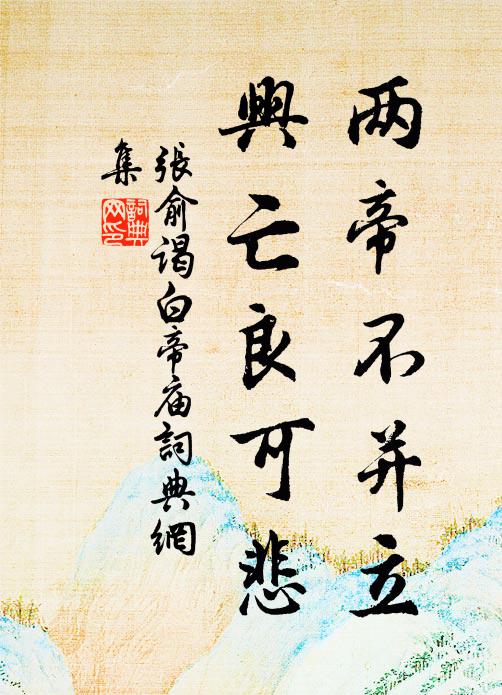 两帝不并立
興亡良可悲
張俞谒白帝庙詞典網
集
詞典
网印